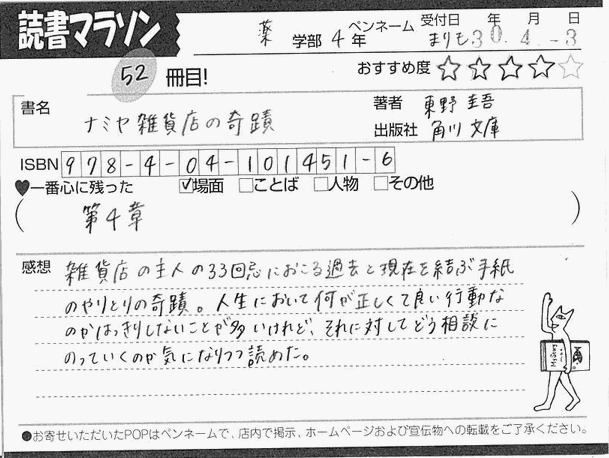 読書マラソン
薬 学部 4 年 ペンネーム まりも 受付日 30 年 4 月 -3 日
52 冊目! おすすめ度 ★★★★☆
書名 ナミヤ雑貨店の奇蹟 著者 東野圭吾
出版社 角川文庫
ISBN 978-4-04-101451-6
♥一番心に残った ☑場面 □ことば □人物 □その他
(第4章)
感想 雑貨店の主人の33回忌におこる過去と現在を結ぶ手紙
のやりとりの奇蹟。人生において何が正しくて良い行動な
のかはっきりしないことが多いけれど、それに対してどう相談に
のっていくのか気になりつつ読めた。
●お寄せいただいたPOPはペンネームで、店内で掲示、ホームページおよび宣伝物への転載をご了承ください。